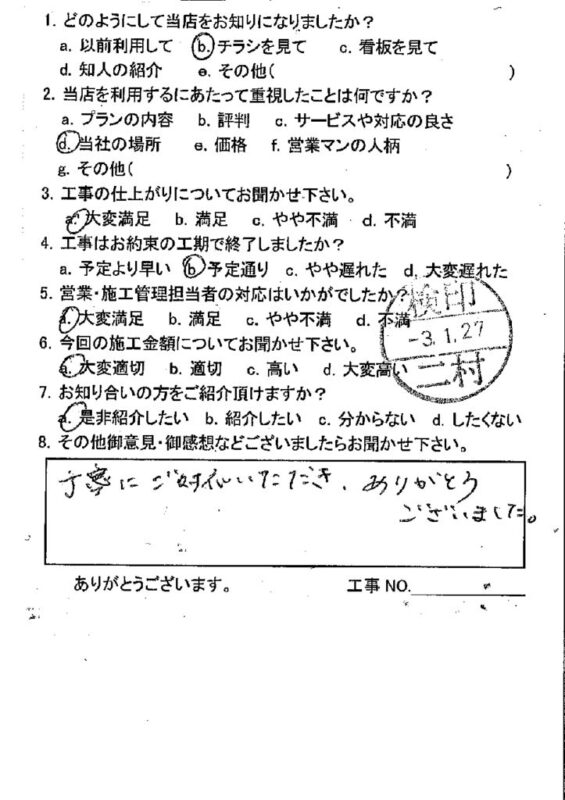 1. どのようにして当店をお知りになりましたか?
a. 以前利用して b. チラシを見て c. 看板を見て
d. 知人の紹介 e. その他( )
2. 当店を利用するにあたって重視したことは何ですか?
a. プランの内容 b. 評判 c. サービスや対応の良さ
d. 当社の場所 e. 価格 f. 営業マンの人柄
g. その他( )
3. 工事の仕上がりについてお聞かせ下さい。
a. 大変満足 b. 満足 c. やや不満 d. 不満
4. 工事はお約束の工期で終了しましたか?
a. 予定より早い b 予定通り c. やや遅れた d. 大変遅れた
5. 営業・施工管理担当者の対応はいかがでしたか?
a. 大変満足 b. 満足 c. やや不満 d. 不満
検印
-3.1.27
二村
6. 今回の施工金額についてお聞かせ下さい。
a. 大変適切 b. 適切 c. 高い d. 大変高い
7. お知り合いの方をご紹介頂けますか?
a. 是非紹介したい b. 紹介したい c. 分からない d. したくない
8. その他御意見・御感想などございましたらお聞かせ下さい。
丁寧にご対応いただき、ありがとう
ございました。
ありがとうございます。 工事NO.